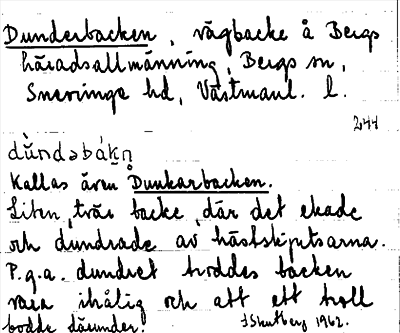 Dunderbacken, vägbacke å Bergs
häradsallmänning, Bergs sn,
Snevringe hd, Västmanl. l.
244
dùndəbákn̥
Kallas även Dunkarbacken.
Liten, tvär backe, där det ekade
och dundrade av hästskjutsarna.
P.g.a. dundret troddes backen
vara ihålig och att ett troll
bodde därunder. 1962.